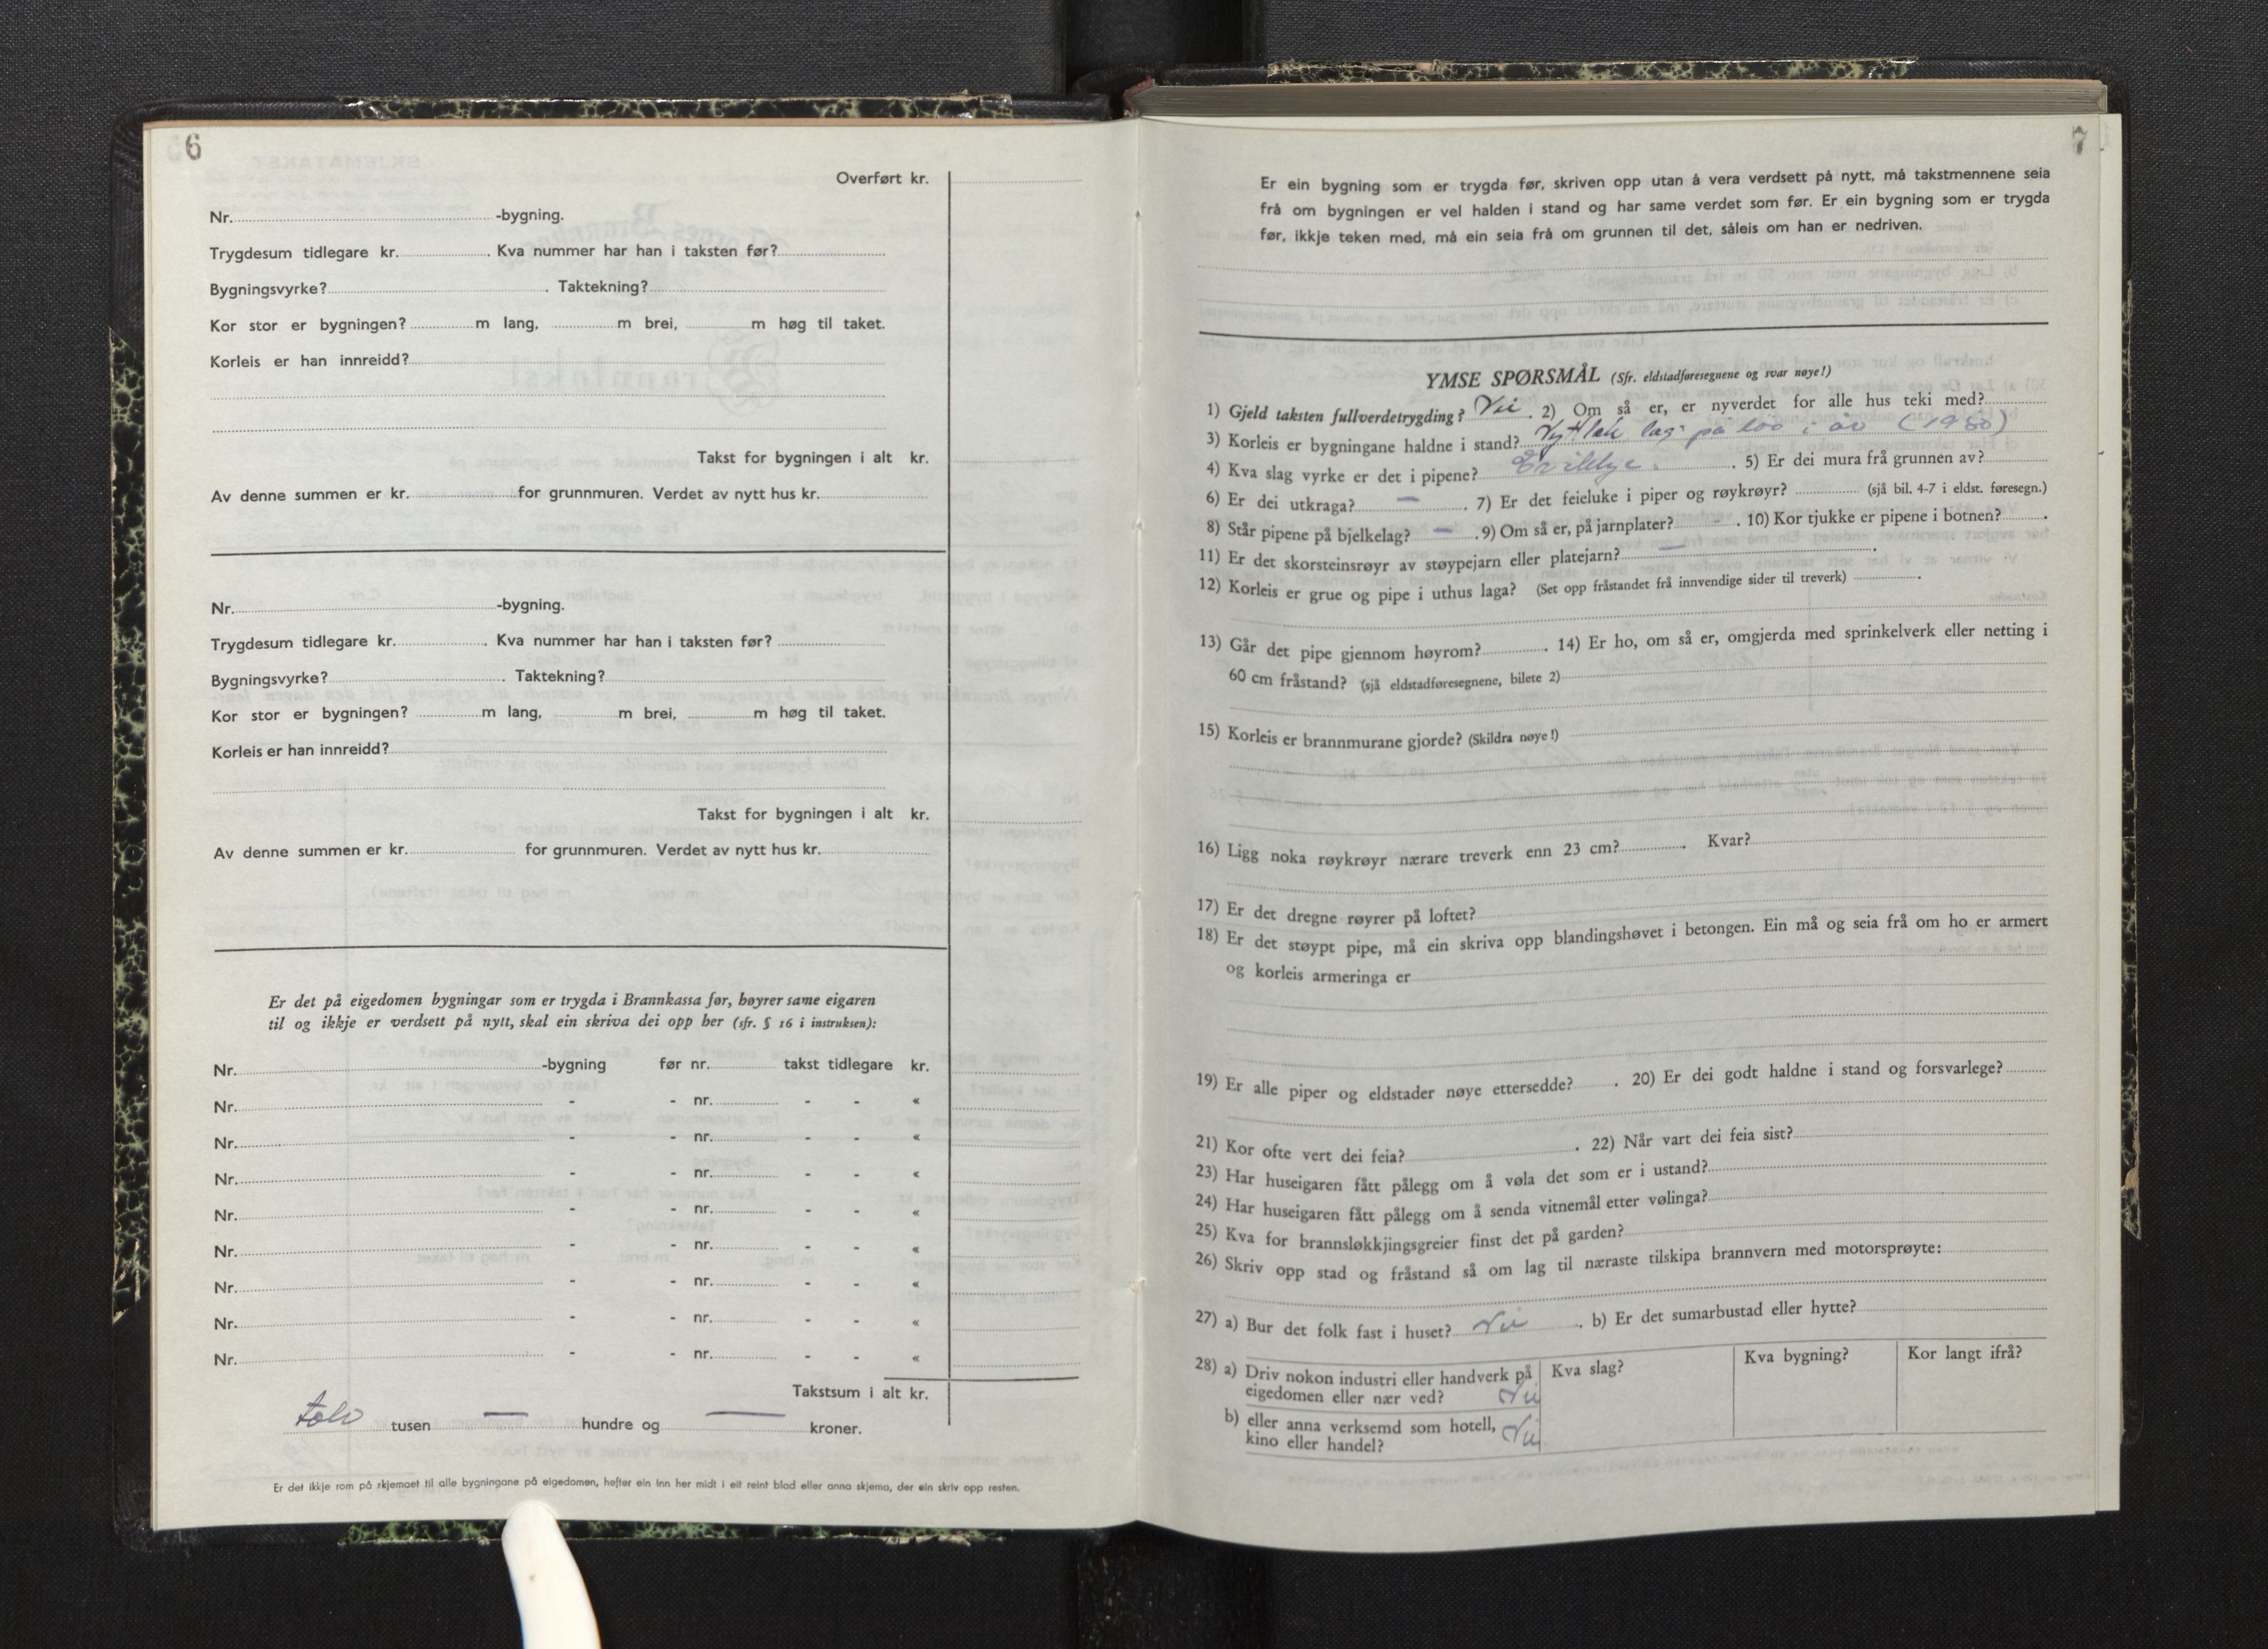 6
Overført kr.
Nr. -bygning.
Trygdesum tidlegare kr. . Kva nummer har han i taksten før?
Bygningsvyrke? . Taktekning?
Kor stor er bygningen? m lang, m brei, m høg til taket.
Korleis er han innreidd?
Takst for bygningen i alt kr.
Av denne summen er kr. for grunnmuren. Verdet av nytt hus kr.
Nr. -bygning.
Trygdesum tidlegare kr. . Kva nummer har han i taksten før?
Bygningsvyrke? . Taktekning?
Kor stor er bygningen? m lang, m brei, m høg til taket.
Korleis er han innreidd?
Takst for bygningen i alt kr.
Av denne summen er kr. for grunnmuren. Verdet av nytt hus kr.
Er det på eigedomen bygningar som er trygda i Brannkassa før, høyrer same eigaren
til og ikkje er verdsett på nytt, skal ein skriva dei opp her (sfr. § 16 i instruksen):
Nr. -bygning før nr. takst tidlegare kr.
Nr. - - nr. - - «
Nr. - - nr. - - «
Nr. - - nr. - - «
Nr. - - nr. - - «
Nr. - - nr. - - «
Nr. - - nr. - - «
Nr. - - nr. - - «
Nr. - - nr. - - «
Takstsum i alt kr.
tolv tusen — hundre og — kroner.
Er det ikkje rom på skjemaet til alle bygningane på eigedomen, hefter ein inn her midt i eit reint blad eller anna skjema, der ein skriv opp resten.
7
Er ein bygning som er trygda før, skriven opp utan å vera verdsett på nytt, må takstmennene seia
frå om bygningen er vel halden i stand og har same verdet som før. Er ein bygning som er trygda
før, ikkje teken med, må ein seia frå om grunnen til det, såleis om han er nedriven.
YMSE SPØRSMÅL (Sfr. eldstadføresegnene og svar nøye!)
1) Gjeld taksten fullverdetrygding? Nei . 2) Om så er, er nyverdet for alle hus teki med?
3) Korleis er bygningane haldne i stand? Nytt tak på i år (1950)
4) Kva slag vyrke er det i pipene? . 5) Er dei mura frå grunnen av?
6) Er dei utkraga? — . 7) Er det feieluke i piper og røykrøyr? (sjå bil. 4-7 i eldst. føresegn.)
8) Står pipene på bjelkelag? — . 9) Om så er, på jarnplater? - . 10) Kor tjukke er pipene i botnen? .
11) Er det skorsteinsrøyr av støypejarn eller platejarn? — .
12) Korleis er grue og pipe i uthus laga? (Set opp fråstandet frå innvendige sider til treverk) .
13) Går det pipe gjennom høyrom? . 14) Er ho, om så er, omgjerda med sprinkelverk eller netting i
60 cm fråstand? (sjå eldstadføresegnene, bilete 2)
15) Korleis er brannmurane gjorde? (Skildra nøye!)
16) Ligg noka røykrøyr nærare treverk enn 23 cm? . Kvar?
17) Er det dregne røyrer på loftet?
18) Er det støypt pipe, må ein skriva opp blandingshøvet i betongen. Ein må og seia frå om ho er armert
og korleis armeringa er
19) Er alle piper og eldstader nøye ettersedde? . 20) Er dei godt haldne i stand og forsvarlege?
21) Kor ofte vert dei feia? . 22) Når vart dei feia sist?
23) Har huseigaren fått pålegg om å vøla det som er i ustand?
24) Har huseigaren fått pålegg om å senda vitnemål etter vølinga?
25) Kva for brannsløkkjingsgreier finst det på garden?
26) Skriv opp stad og fråstand så om lag til næraste tilskipa brannvern med motorsprøyte:
27) a) Bur det folk fast i huset? Nei . b) Er det sumarbustad eller hytte?
28) a) Driv nokon industri eller handverk på Kva slag? Kva bygning? Kor langt ifrå?
eigedomen eller nær ved? Nei
b) eller anna verksemd som hotell, Nei
kino eller handel?